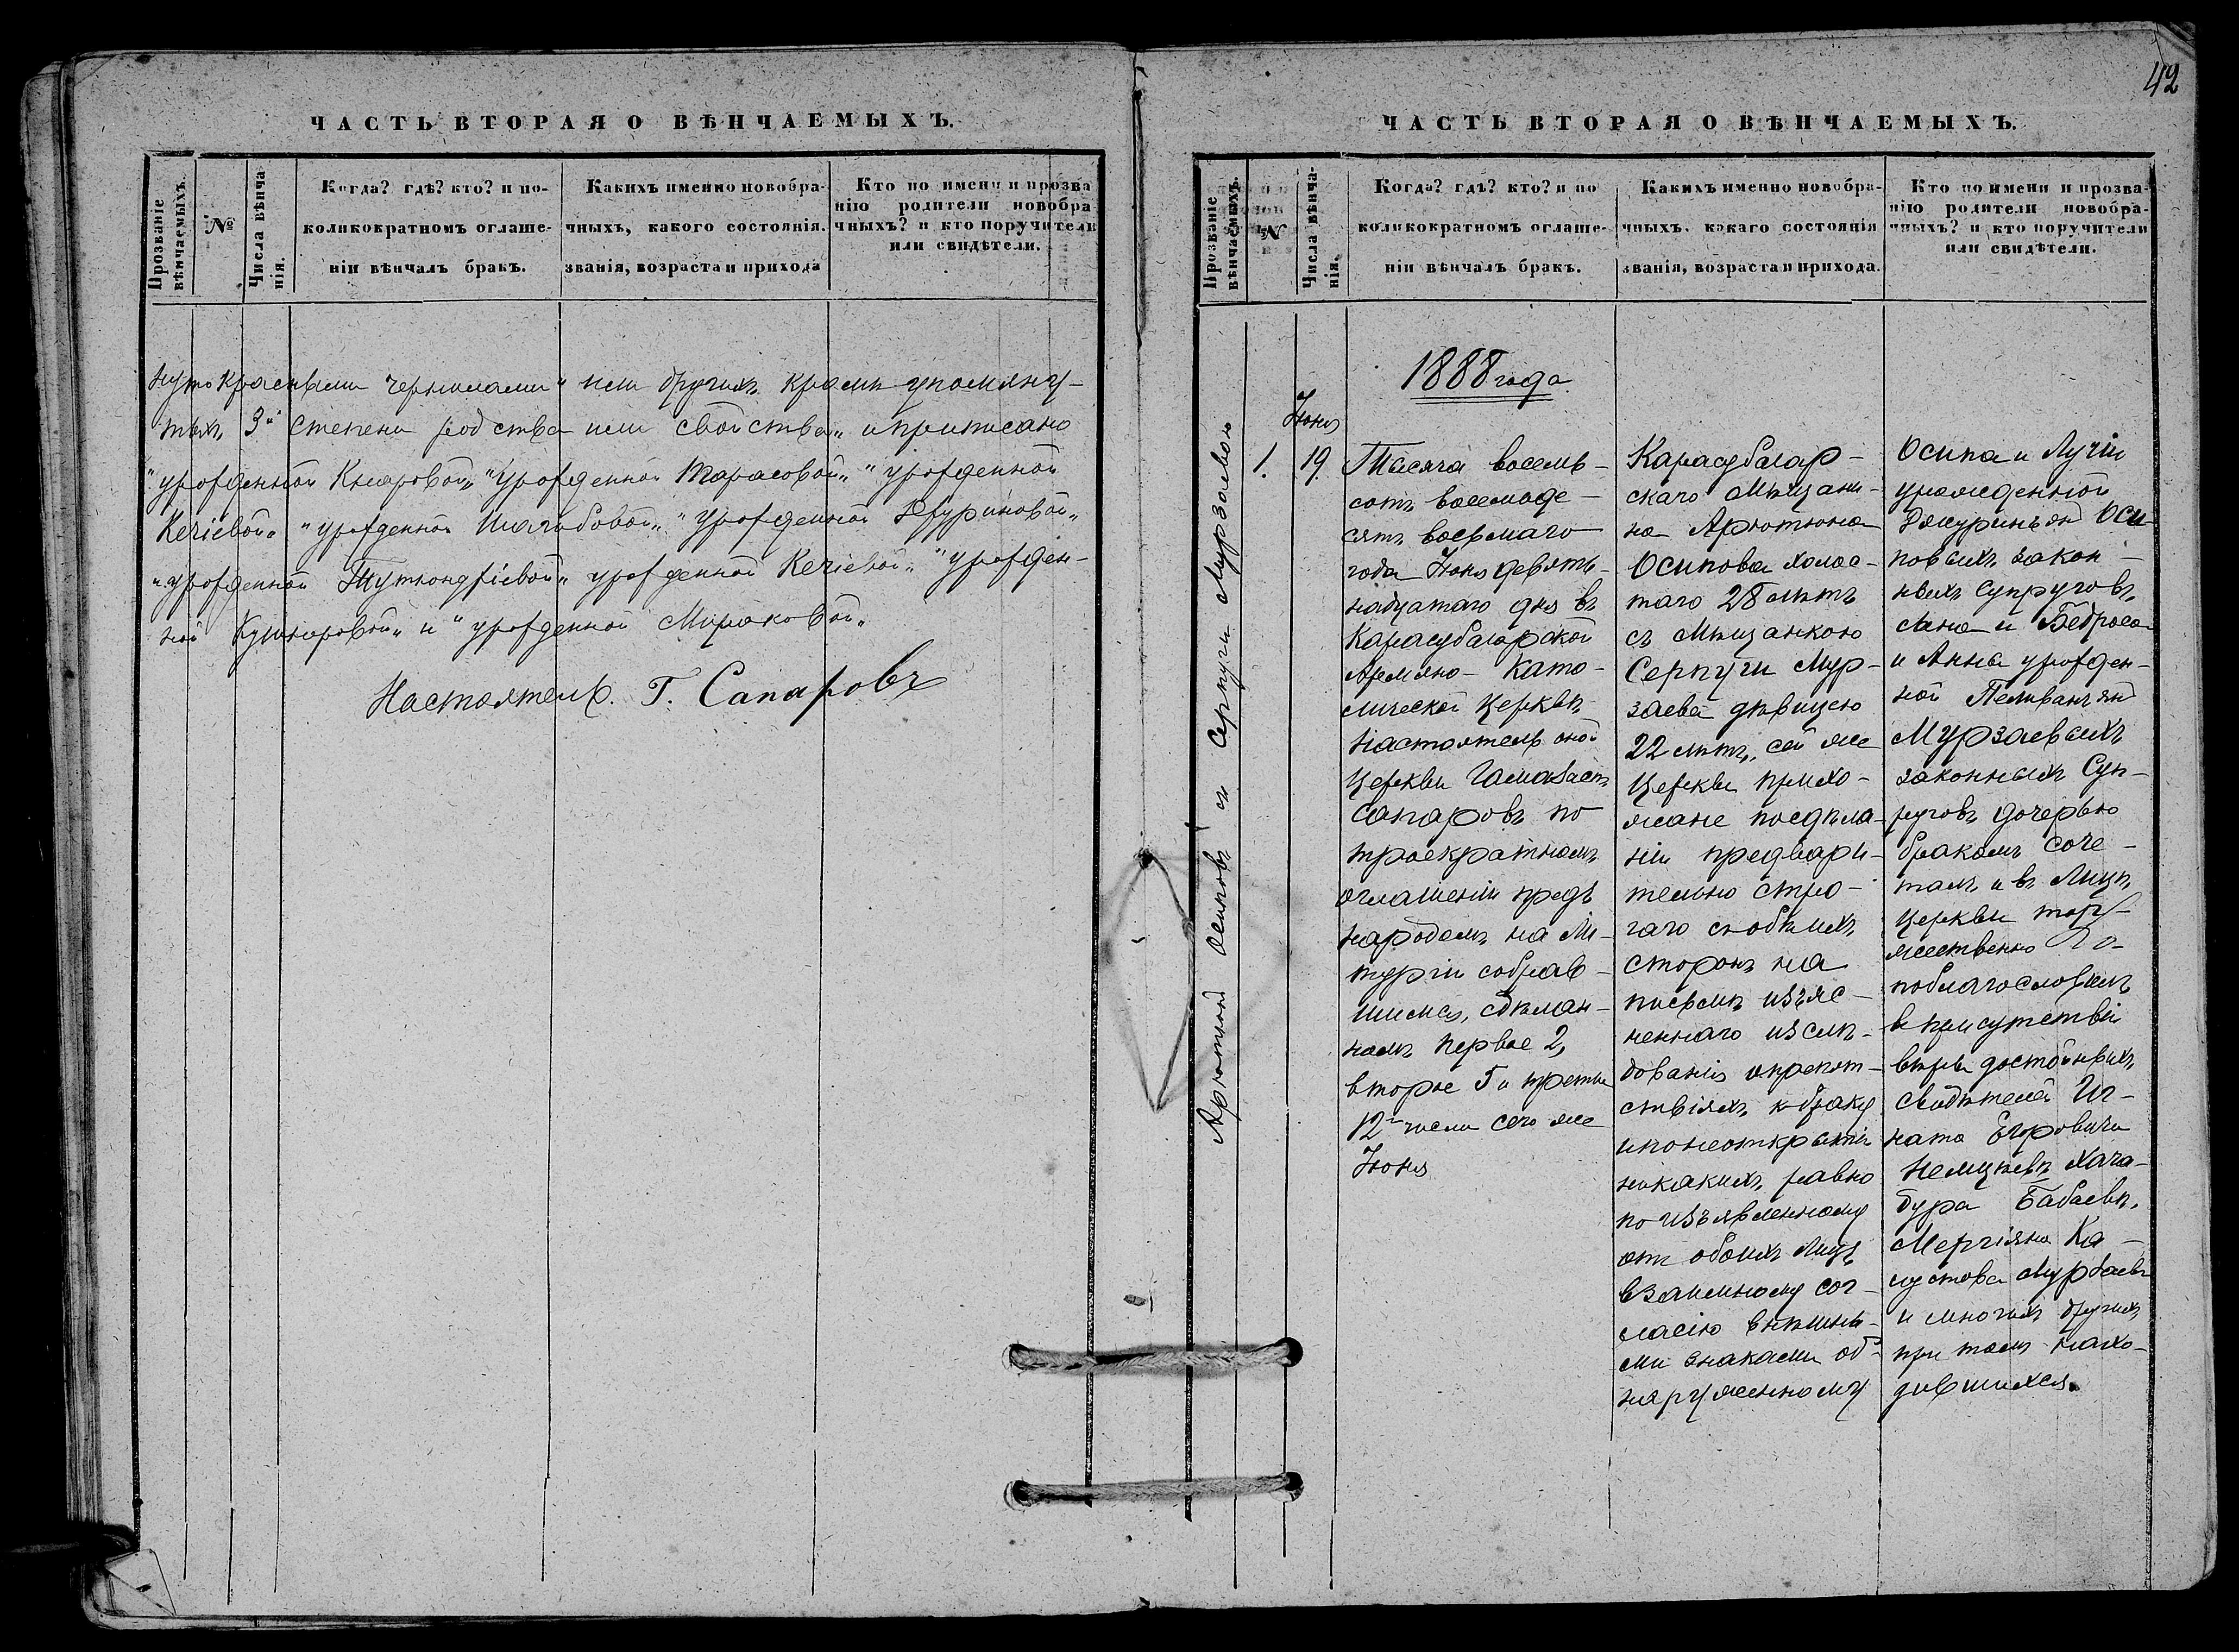 42
ЧАСТЬ ВТОРАЯ О ВѢНЧАЕМЫХЪ.
Прозваніе вѣнчаемыхъ.
№
Числа вѣнча-
нія.
Когда? гдѣ? кто? и по-
коликократномъ оглаше-
ніи вѣнчалъ бракъ.
Какихъ именно новобра-
чныхъ, какого состоянія.
званія, возраста и прихода
Кто по имени и прозва
нію родители новобра
чныхъ? и кто поручители
или свидѣтели.
нуто красными чернилами" или другихъ кромѣ упомяну-
тыхъ 3й степени родства или свойства" и приписано
"урожденной Кнаровой" "урожденной Тарасовой" "урожденной
Кечіевой" "урожденной Шагибовой" "урожденной Джуриновой"
"урожденной Тутюнджіевой" урожденной Кечіевой" "урожден-
ной Кушнировой" и "урожденной Мираковой"
Настоятель Г. Сапаровъ
ЧАСТЬ ВТОРАЯ О ВѢНЧАЕМЫХЪ.
Прозваніе
вѣнчаемыхъ.
№
Числа вѣнча-
нія.
Когда? гдѣ? кто? и по
коликократномъ оглаше-
ніи вѣнчалъ бракъ.
Какихъ именно новобра-
чныхъ. какаго состоянія
званія, возраста и прихода.
Кто по имени и прозва-
нію родители новобра-
чныхъ? и кто поручители
или свидѣтели.
Арютюнъ Осиповъ съ Серпуги Мурзаевою
1.
Іюня
19
1888 года
Тысяча восемь-
сотъ восемьде-
сятъ восьмаго
года Іюня девять-
надцатаго дня въ
Карасубазарской
Армяно-Като-
лической Церквѣ
Настоятель оной
Церкви Гамазаспъ
Сапаровъ по
троекратномъ
оглашеніи предъ
народомъ на Ли-
тургіи собрав-
шимся, сдѣлан-
номъ первое 2,
второе 5 и третье
12го числа сего же
Іюня
Карасубазар-
скаго Мѣщани-
на Арютюна
Осипова холос-
таго 28 лѣтъ
съ Мѣщанкою
Серпуги Мур-
заева дѣвицею
22 лѣтъ, сей же
Церкви прихо-
жане поедѣла-
ніи предвари-
тельно стро-
гаго собѣихъ
сторонъ на
письмѣ изъяс-
неннаго изслѣ-
дованія опрепят-
ствіяхъ къ браку
и по неоткрытіи
никакихъ, равно
по изъявленному
отъ обоихъ Лицъ
взаимному сог-
ласію внѣшны-
ми знаками об-
наруженному
Осипа и Лучіи
урожденной
Джуринъянъ Оси
повыхъ закон-
ныхъ супруговъ,
сына и Бедроса
и Анны урожден-
ной Пеливанъянъ
Мурзаевыхъ
законныхъ Суп-
руговъ дочерью
бракомъ соче-
талъ и въ Лицѣ
Церкви тор-
жественно
поблагословилъ
въ присутствіи
вѣры достойныхъ
Свидѣтелей Иг-
ната Егоровича
Немцевъ Хача-
дура Бабаевъ,
Мерчіяна Ка-
лустова Мурзаевъ
и многихъ другихъ
при томъ нахо-
дившихся.